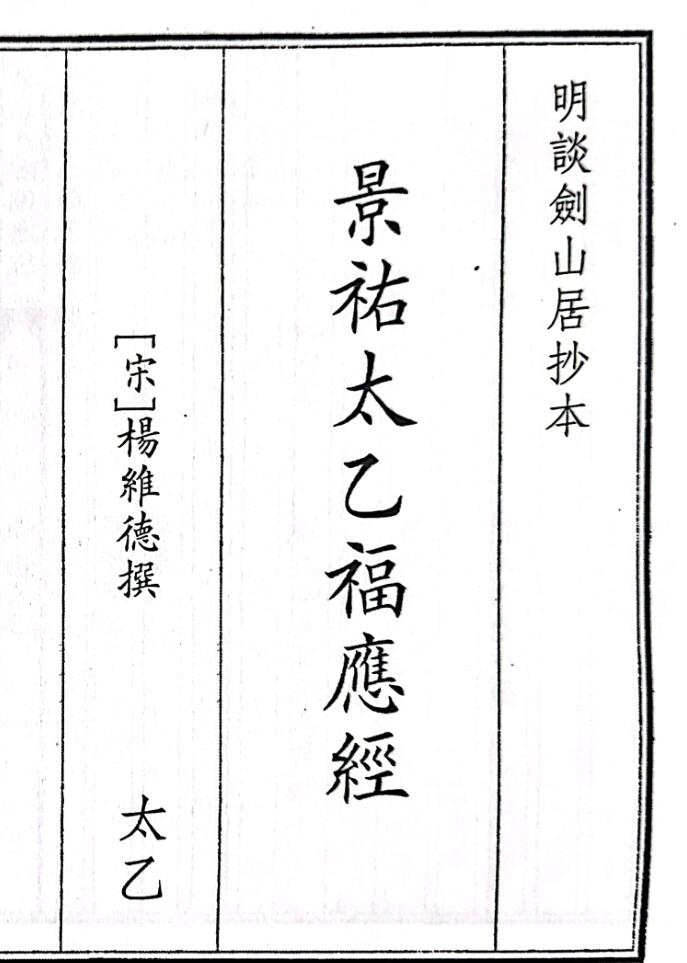 明談劍山居抄本
景祐太乙福應經
［宋］楊維德撰
太乙